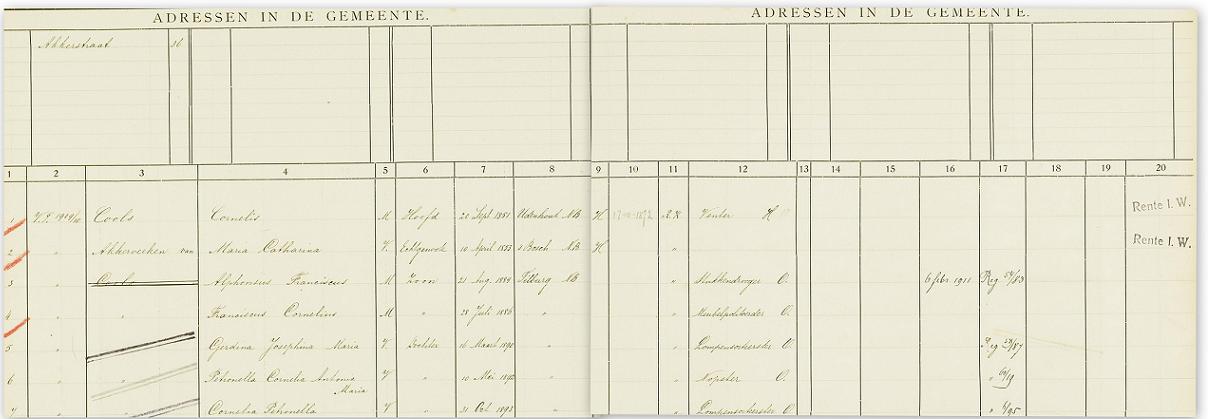 ADRESSEN IN DE GEMEENTE.
ADRESSEN IN DE GEMEENTE.
Akkerstraat 36
1 2 3 4 5 6 7 8 9 10 11 12 13 14 15 16 17 18 19 20
1 V.T. 1909/10 Cools Cornelis M Hoofd 20 Sept 1851 Udenhout NB H R.K Venter H Rente I.W.
2 " Akkerveeken van Maria Catharina V. Echtgenoote 10 April 1853 s Bosch NB H " Rente I.W.
3 " Cools Alphonsius Franciscus M Zoon 21 Aug. 1884 Tilburg NB " O. 6 febr 1911 Reg 54/83
4 " " Franciscus Cornelius M " 28 Juli 1886 " " Meubelpolitoerder O.
5 " Gerdina Josephina Maria V. Dochter 16 Maart 1890 " " Lompensorteerster O Reg 53/87
6 " " Petronella Cornelia Antonia V " 10 Mei 1892 " " Nopster O. "
Maria
7 " Cornelia Petronella V " 31 Oct. 1893 " " Lompensorteerster O "